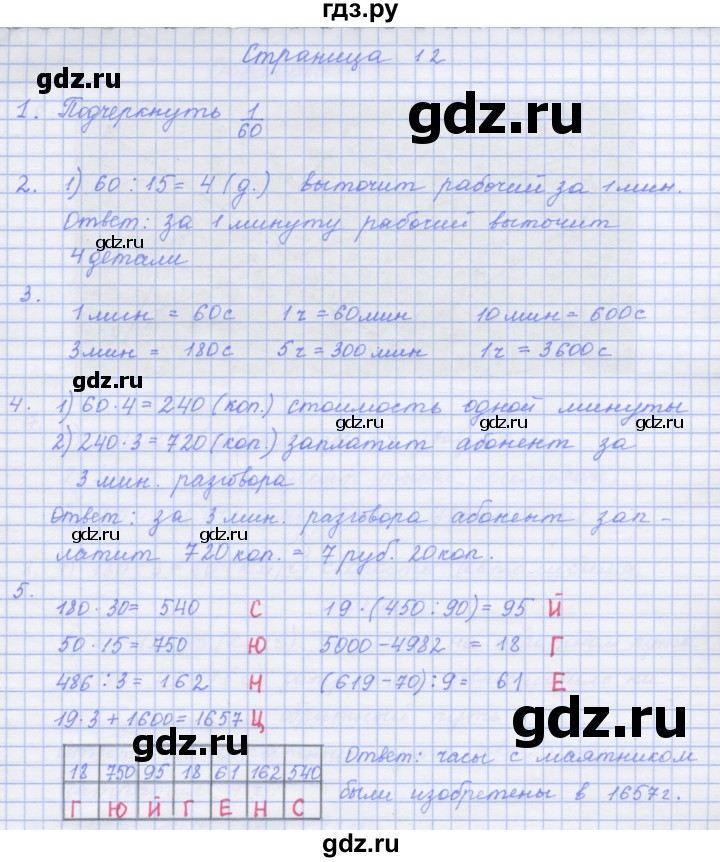 гдз.ру
Страница 12
gdz.ru
gdz.ru
1. Подчеркнуть 1/60
2. 1) 60 : 15 = 4 (д.) выточит рабочий за 1 мин.
Ответ: за 1 минуту рабочий выточит
gdz.ru
4 детали
3.
1 мин = 60 с 1 ч = 60 мин 10 мин = 600 с
3 мин = 180 с 5 ч = 300 мин 1 ч = 3600 с
gdz.ru
4. 1) 60 · 4 = 240 (коп.) стоимость одной минуты
gdz.ru gdz.ru gdz.ru
2) 240 · 3 = 720 (коп) заплатит абонент за
3 мин. разговора
Ответ: за 3 мин. разговора абонент зап-
gdz.ru gdz.ru gdz.ru
латит 720 коп. = 7 руб. 20 коп.
5.
180 · 30 = 540 С 19 · (450 : 90) = 95 Й
50 · 15 = 750 Ю 5000 - 4982 = 18 Г
486 : 3 = 162 Н (619 - 70) : 9 = 61 Е
19 · 3 + 1600 = 1657 Ц
gdz.ru
gdz.ru
18 750 95 18 61 162 540
Г Ю Й Г Е Н С
Ответ: часы с маятником
были изобретены в 1657 г.
gdz.ru
gdz.ru